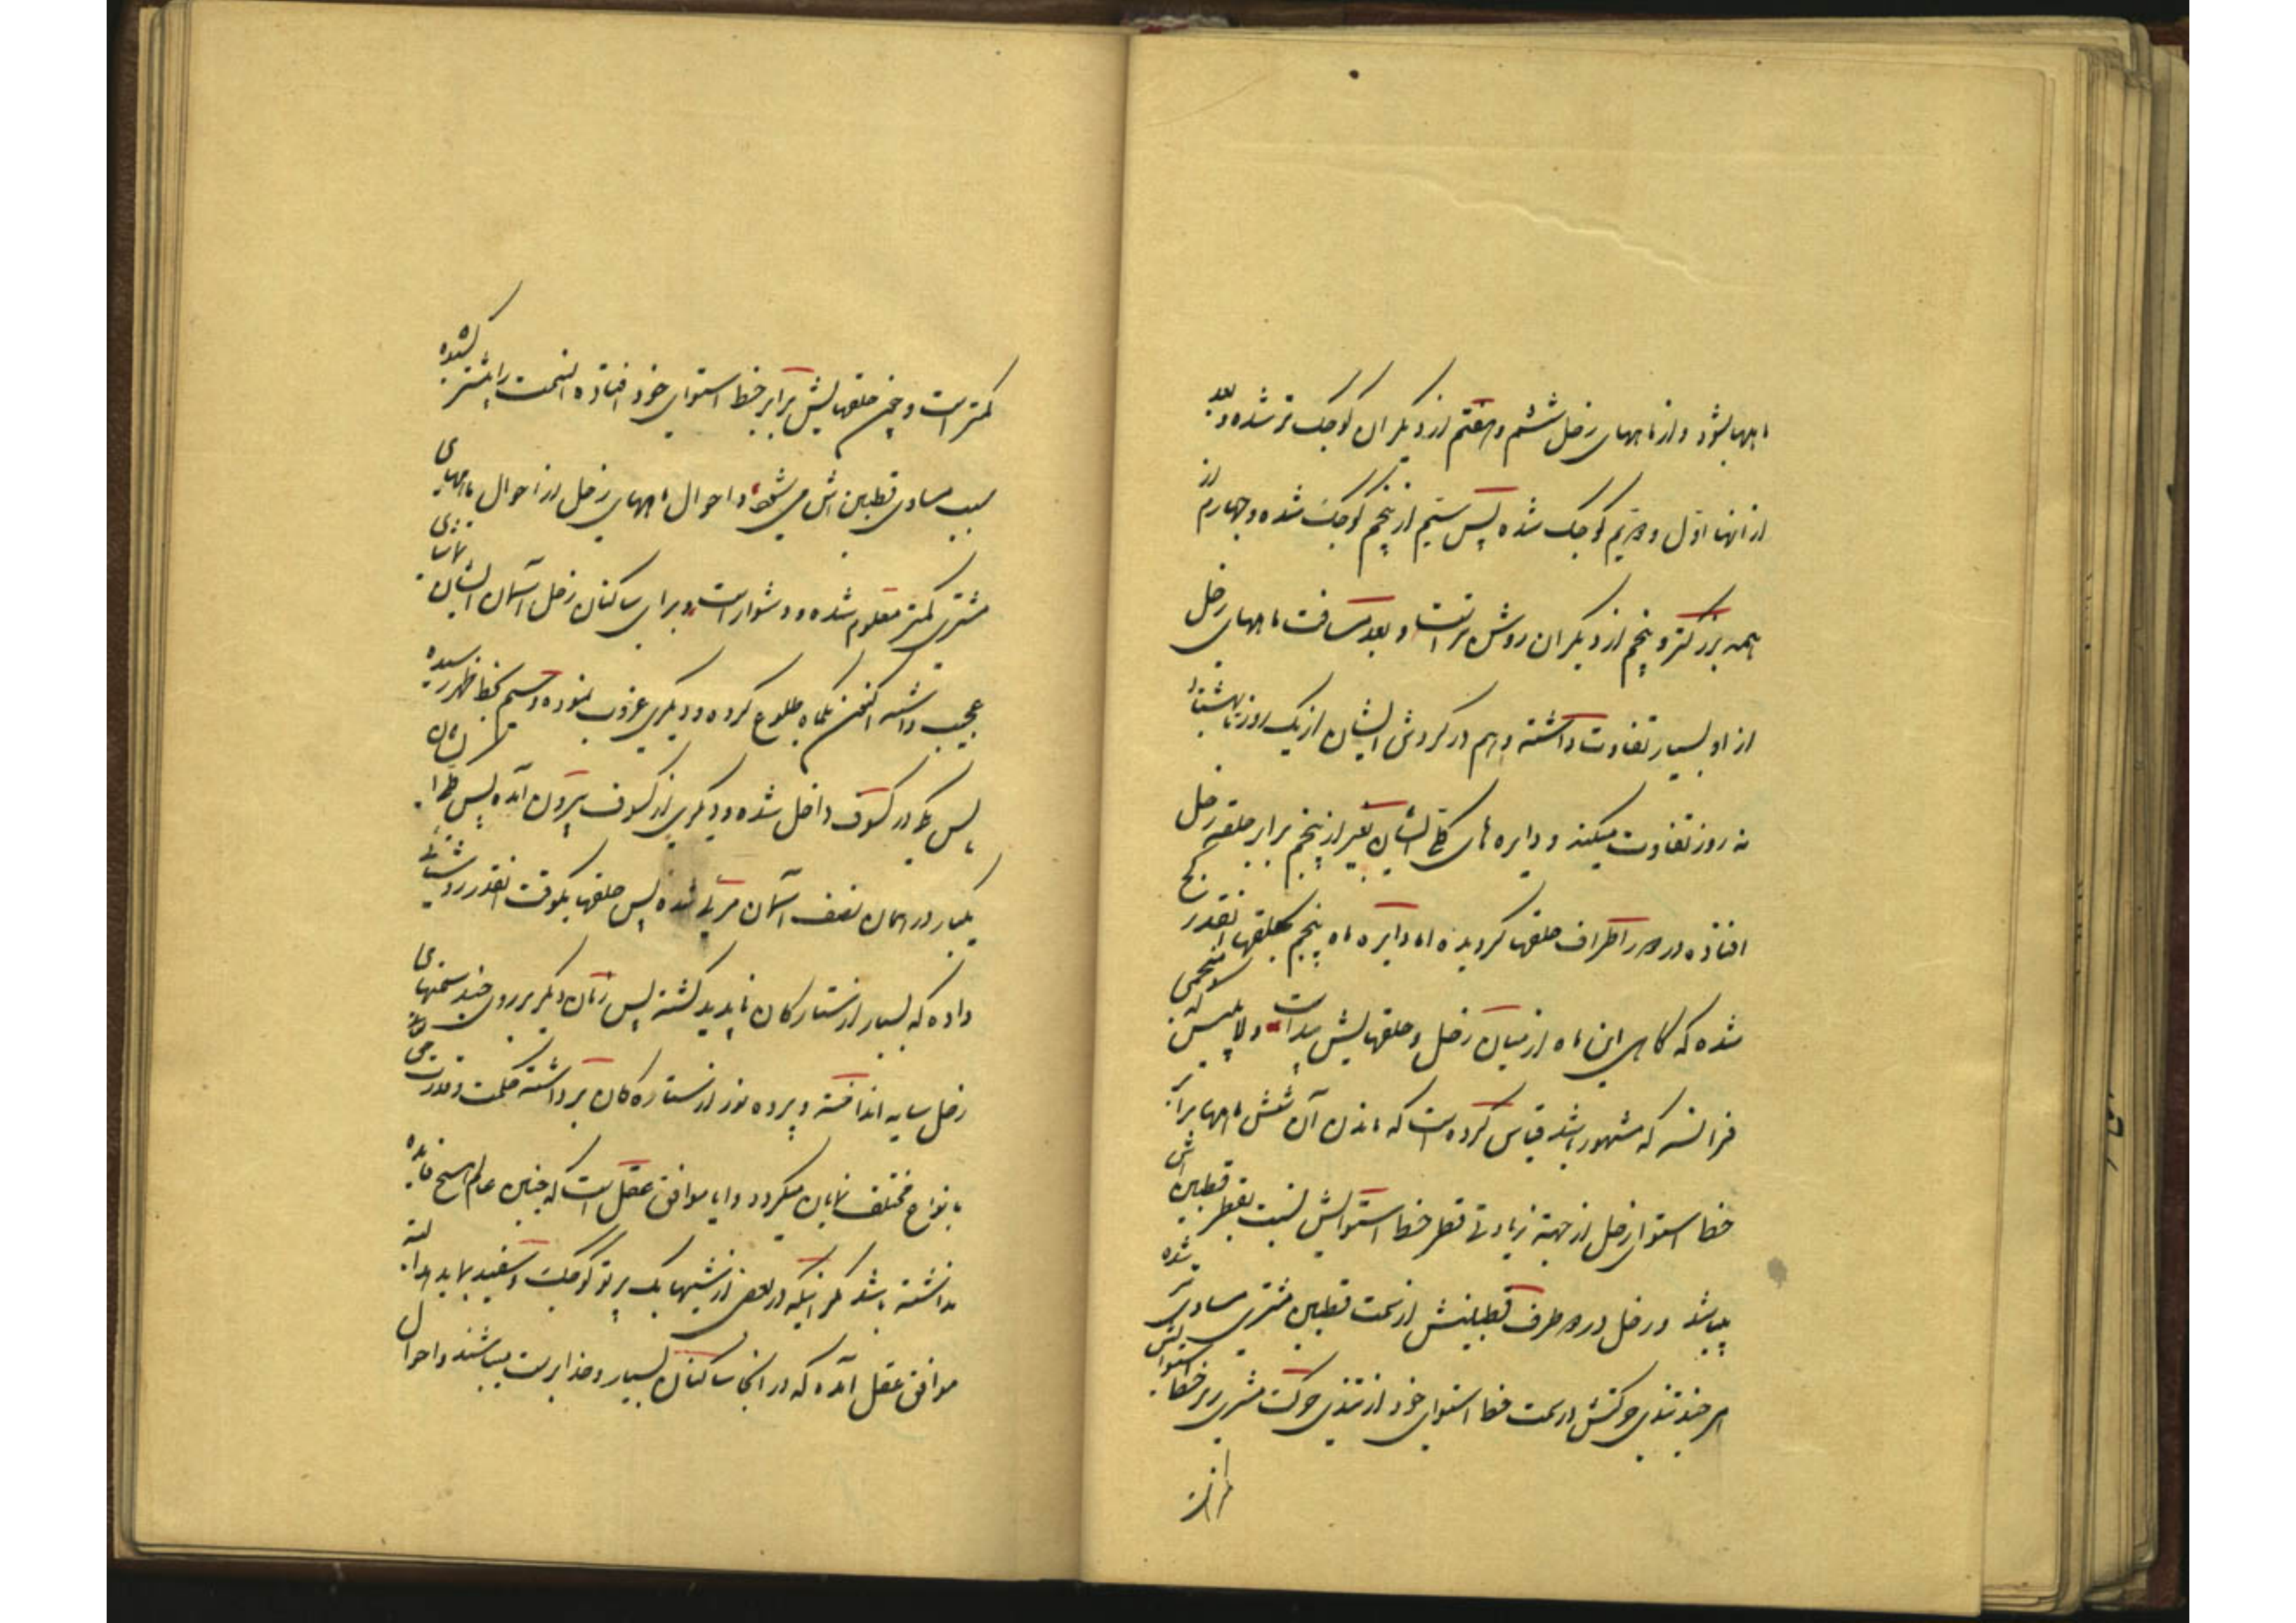 ماهها بشود و از ماههای زحل ششم و هفتم از دیگران کوچک تر شده و بعد
از آنها اول و دویم کوچک شده پس سیم از پنجم کوچک شده و چهارم از
همه بزرگتر و پنجم از دیگران روشن تر است و بعد مسافت ماههای زحل
از او بسیار تفاوت داشته و هم در گردش ایشان از یک روز تا هشتاد
نه روز تفاوت میکند و دایره های کلی ایشان بغیر از پنجم برابر حلقه زحل کج
افتاده در دور اطراف حلقها گردیده اما دایره ماه پنجم بحلقها آنقدر
شده که گاهی این ماه از میان زحل و حلقهایش پیداست و لاپلیس که منجمی
فرانسه که مشهور باشد قیاس کرده است که ماندن آن شش ماهها برابر
خط استوای زحل از جهة زیادتی قطر خط استوایش نسبت بقطر قطبین اش
میباشد و زحل در دو طرف قطبینش از سمت قطبین مشتری مساوی تر شده
هر چند تندی حرکتش در سمت خط استوای خود از تندی حرکت مشتری بر خط استوایش
کمتر است و چون حلقهایش برابر خط استوای خود افتاده آنسمت را بیشتر کشیده
سبب مساوی قطبین اش می شود و احوال ماههای زحل از احوال ماههای
مشتری کمتر معلوم شده و دشوار است و برای ساکنان زحل آسمان ایشان تماشای
عجیب داشته اکنون یکماه طلوع کرده و دیگری غروب نموده و سیم بخط ظهر رسیده
پس یکی در کسوف داخل شده و دیگری از کسوف بیرون آمده پس
یکبار در همان نصف آسمان مرئی شده پس حلقها یکوقت آنقدر روشنائی
داده که بسیار از ستارگان ناپدید گشته پس زمان دیگر بر روی چند سمتهای
زحل سایه انداخته و پرده نور از ستاره کان برداشته حکمت و قدرت
بانواع مختلف نمایان میگردد و آیا موافق عقل است که چنین عالم هیچ فایده
نداشته باشد مگر اینکه در بعض از شبها یک پرتو کوچک و سفید بماید بداند البته
موافق عقل آمده که در آنجا ساکنان بسیار و خداپرست میباشند و احوال